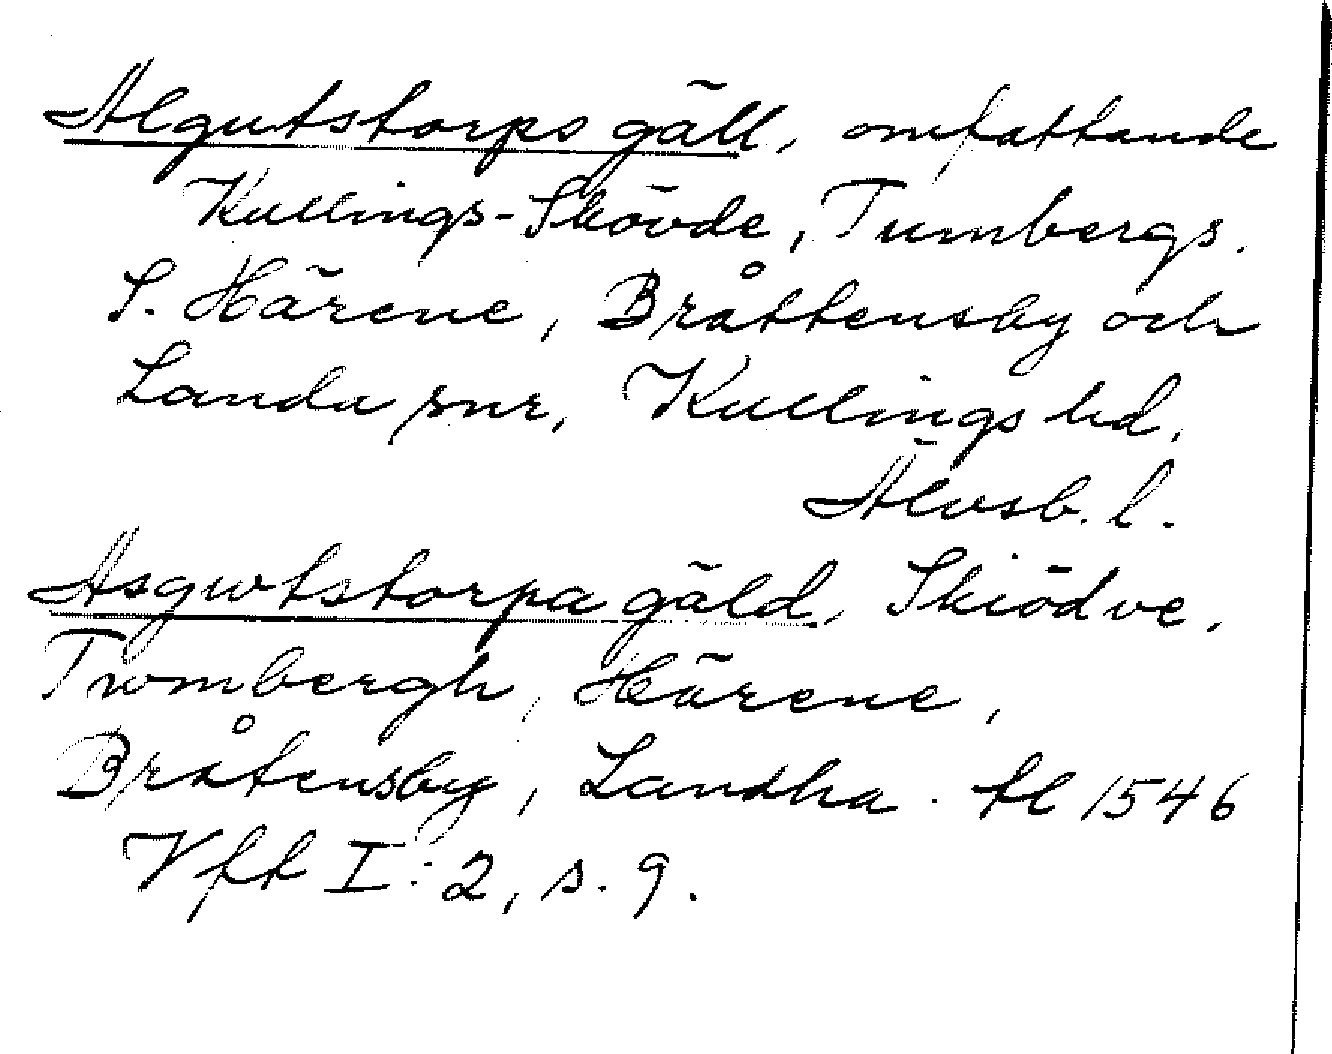 Algutstorps gäll, omfattande
Kullings-Skövde, Tumbergs.
S. Härene, Bråttensby och
Landa snr, Kullings hd,
Älvsb. l.
Asgwtstorpa gäld, Skiödve,
Twmbergh, Härene,
Bråtensby, Landha. tl 1546
Vft I: 2, s. 9.